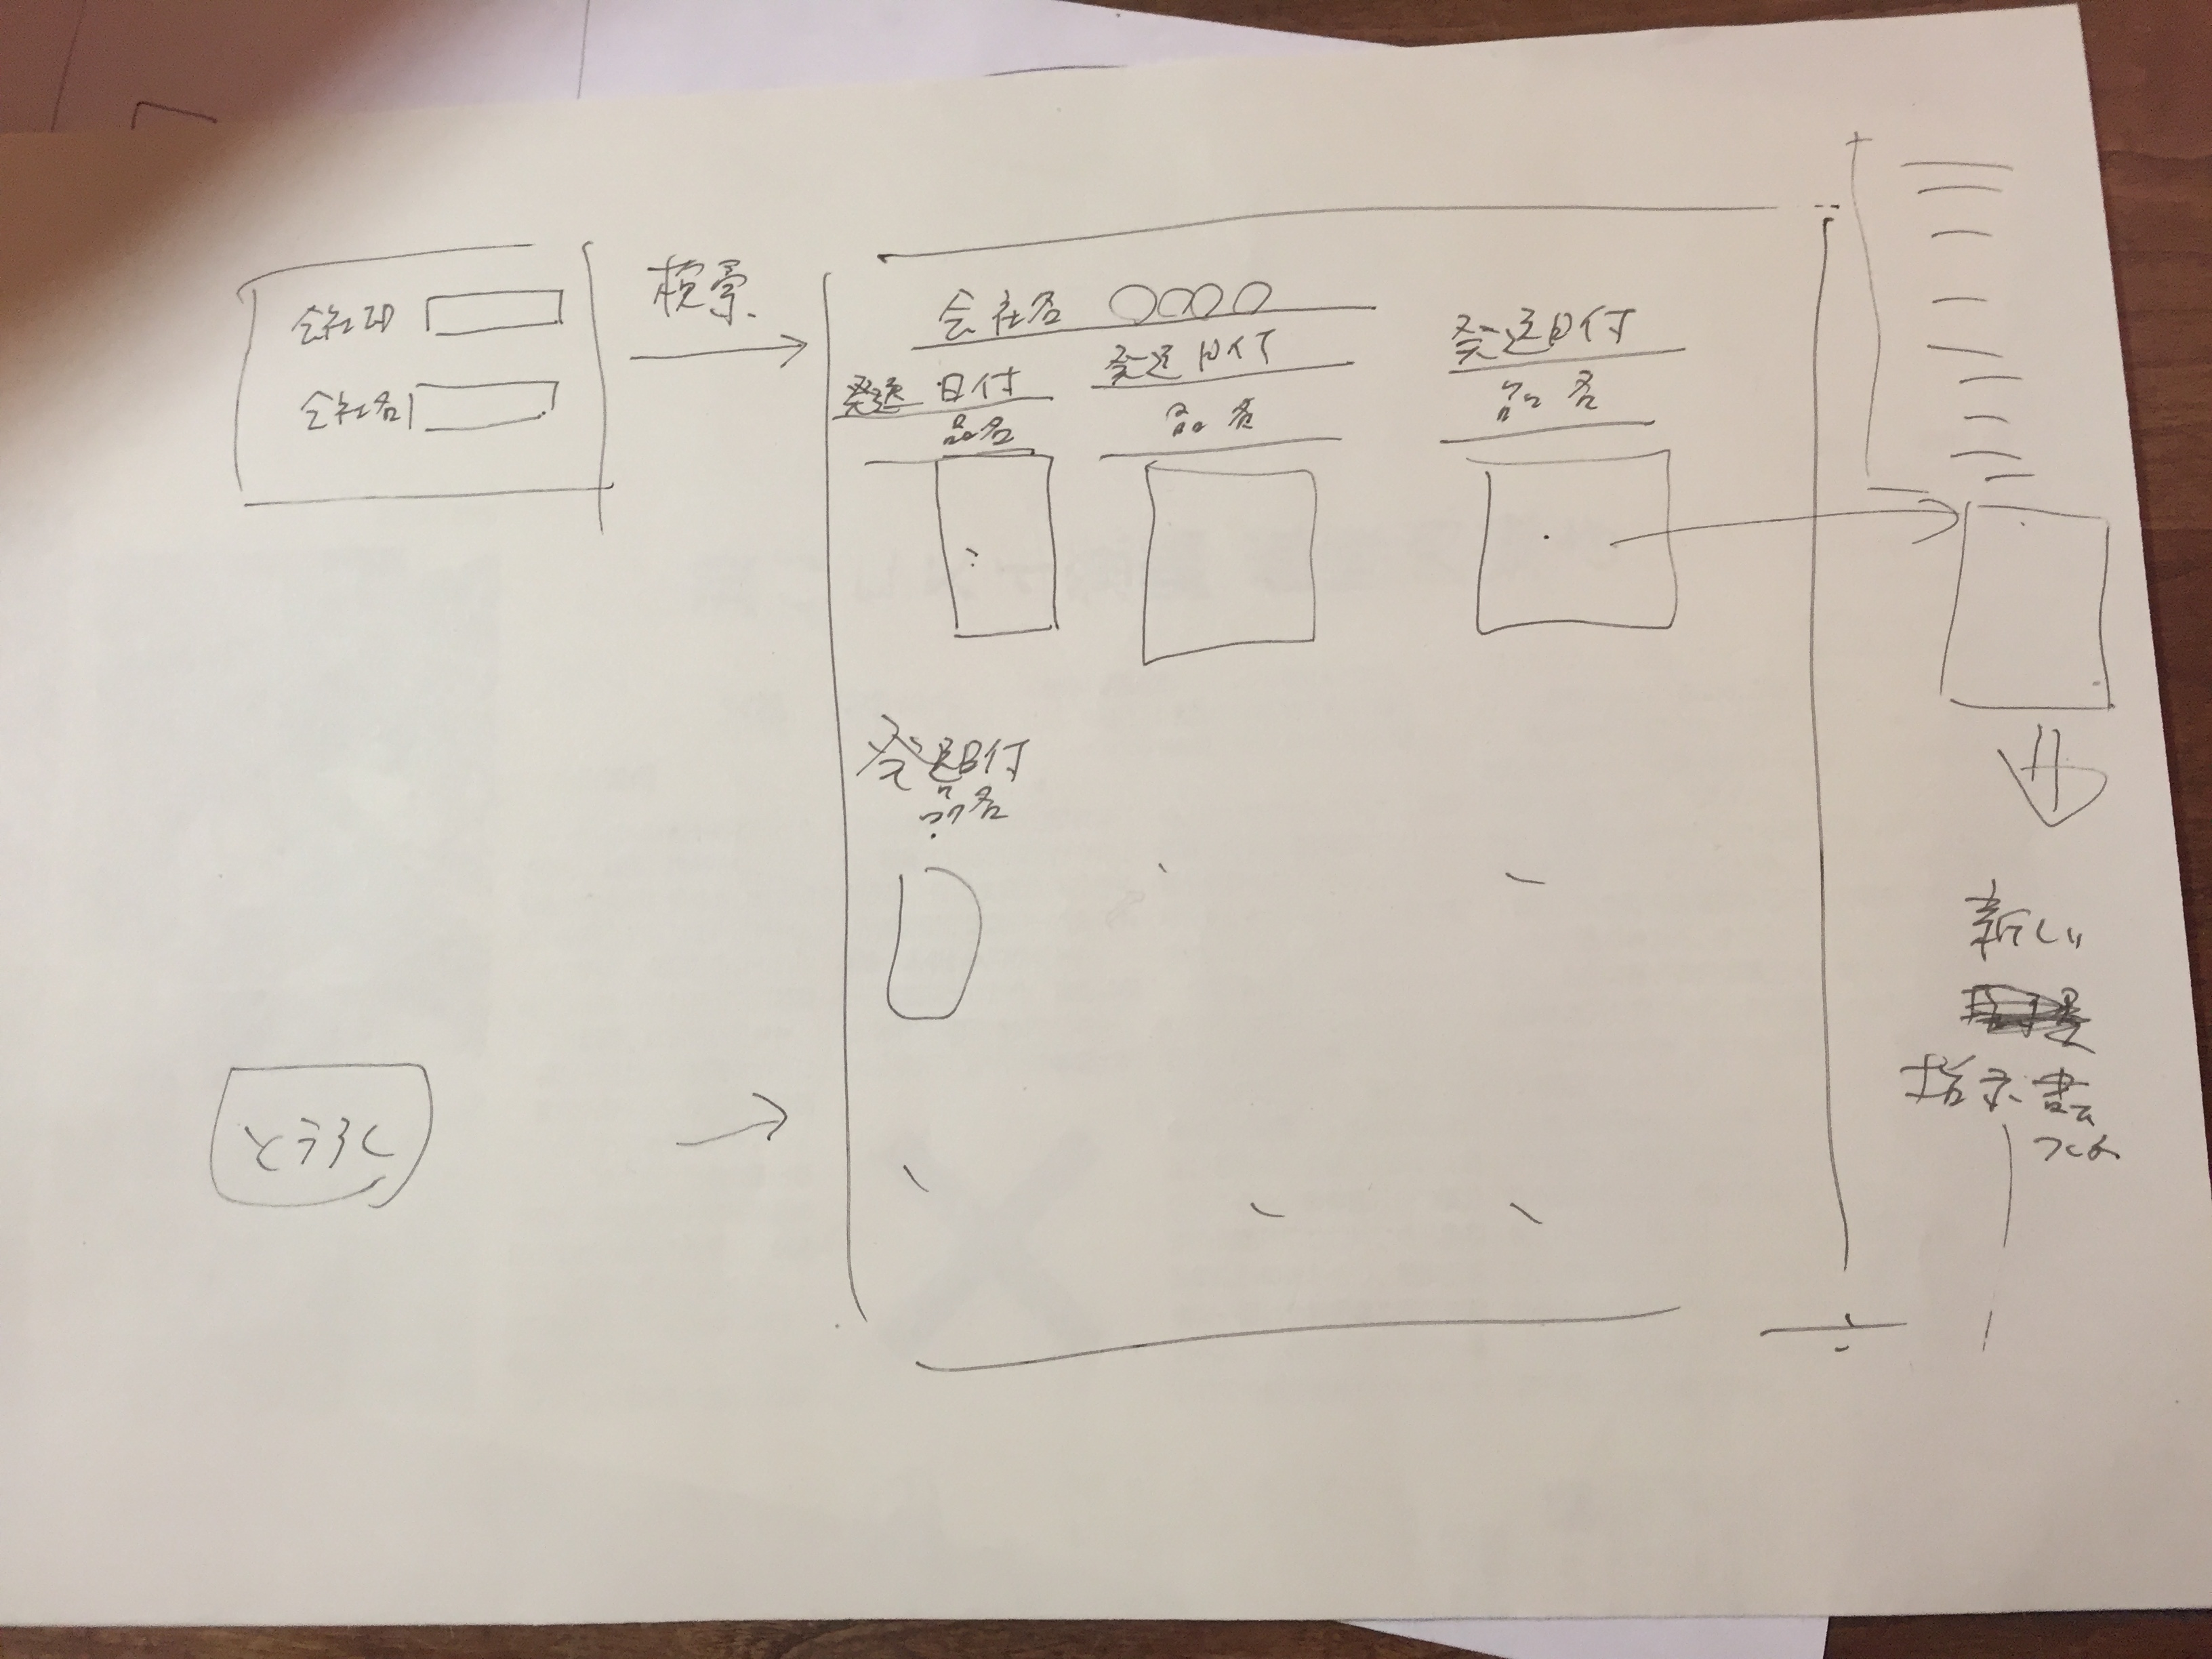 会社ID
会社名
検索
会社名 〇〇〇〇
発送日付
品名
発送日付
品名
発送日付
品名
発送日付
品名
とうろく
新しい
指示書